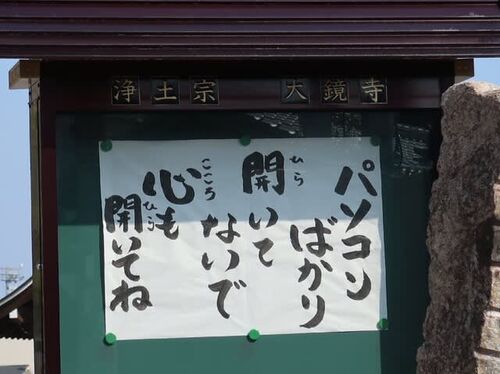 浄土宗 大鏡寺
パソコン
ばかり
開いて
ないで
心も
開いてね
ひら
こころ
ひら